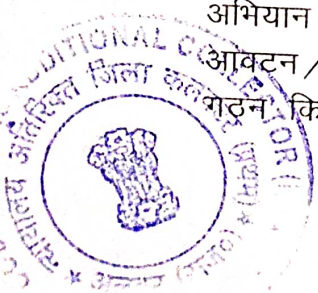 अभियान
आवंटन /
गठन कि
ADDITIONAL COLLECTOR (I
कार्यालय अतिरिक्त जिला कलक्टर (प्रथम) *